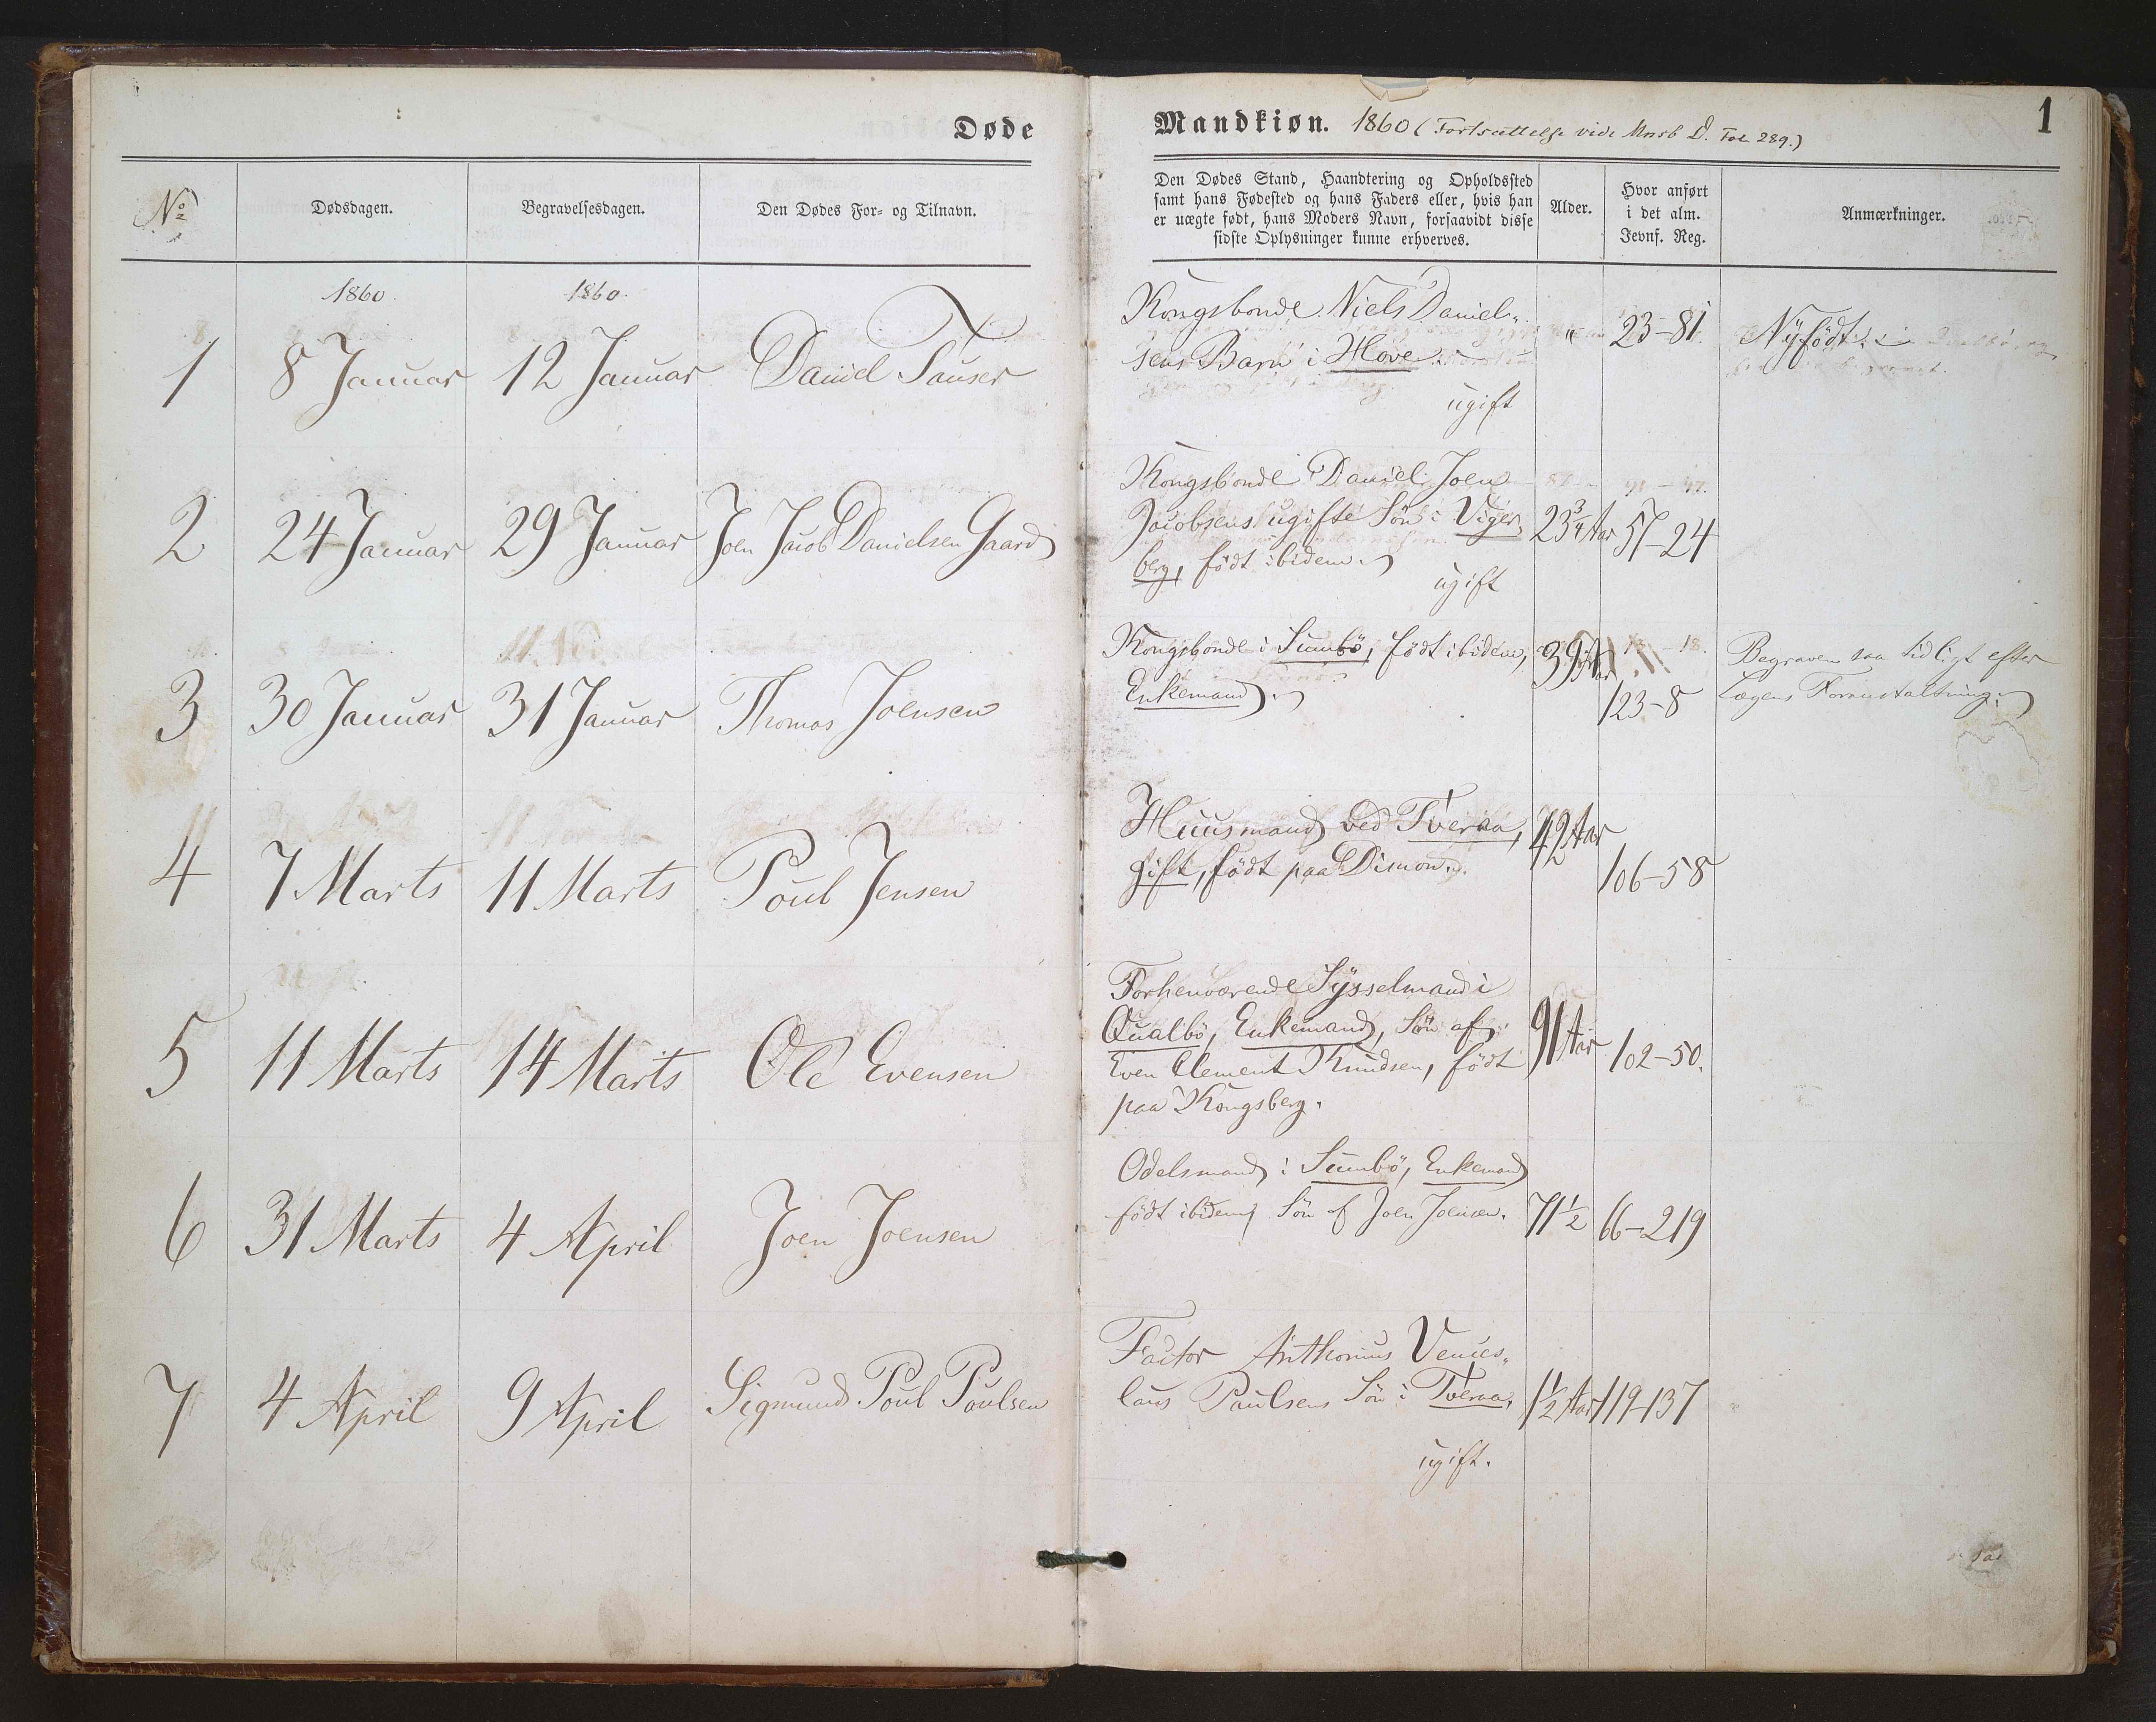 Døde
Mandkiøn. 1860 (Fortsættelse vide Msrb D. Fol 289.)
1
No
Dødsdagen.
Begravelsesdagen.
Den Dødes For- og Tilnavn.
Den Dødes Stand, Haandtering og Opholdssted
samt hans Fødested og hans Faders eller, hvis han
er uægte født, hans Moders Navn, forsaavidt disse
sidste Oplysninger kunne erhverves.
Alder.
Hvor anført
i det alm.
Jevnf. Reg.
Anmærkninger.
1860.
1860.
1
8 Januar
12 Januar
Daniel
Kongsbonde Niels Daniel„
sens Barn i Hove.
ugift
„
23-81.
Nÿfödt.
2
24 Januar
29 Januar
Joen Jacob Danielsen Gaard
Kongsbonde Daniel Joen
Jacobsens ugifte Sön i Viger„
berg, födt ibidem.
ugift
23¾ Aar
57-24
3
30 Januar
31 Januar
Thomas Joensen
Kongsbonde i Sumbö, födt ibidem,
Enkemand.
39 Aar
123-8
Begraven saa tidligt efter
Lægens Foranstaltning.
4
7 Marts
11 Marts
Poul Jensen
Huusmand ved Tveraa,
gift, födt paa Dimon.
42 Aar
106-58
5
11 Marts
14 Marts
Ole Evensen
Forhenværende Sÿsselmand i
Qualbö, Enkemand, Sön af
Even Clement Knudsen, födt
paa Kongsberg.
91 Aar
102-50.
6
31 Marts
4 April
Joen Joensen
Odelsmand i Sumbö, Enkemand
födt ibidem, Sön af Joen Joensen.
71½
66-219
7
4 April
9 April
Sigmund Poul Poulsen
Factor Anthonius Vences„
laus Paulsens Sön i Tveraa,
ugift.
1½ Aar
119-137